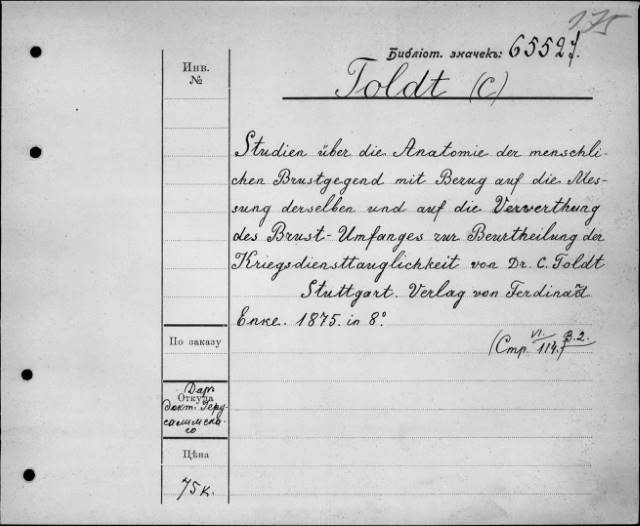 175
Библіот. значекъ: 65527.
Инв.
№
Toldt (C)
Studien über die Anatomie der menschli-
chen Brustgegend mit Bezug auf die Mes-
sung derselben und auf die Verwerthung
des Brust-Umfanges zur Beurtheilung der
Kriegsdiensttauglichkeit von Dr. C. Toldt
Stuttgart. Verlag von Ferdinand
Enke. 1875. in 8°
(Стр. VI. 114.) B.2.
По заказу
Откуда
Даръ
докт. Iеру-
салимска-
го
Цѣна
75 к.